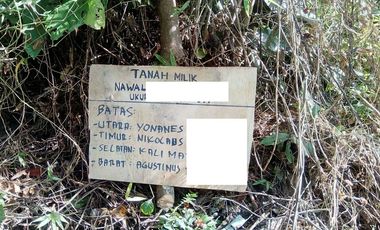 TANAH MILIK
NAWAL
UKUR
BATAS:
-UTARA: YOHANES
-TIMUR: NIKOLAUS
-SELATAN: KALI MA
-BARAT: AGUSTINUS